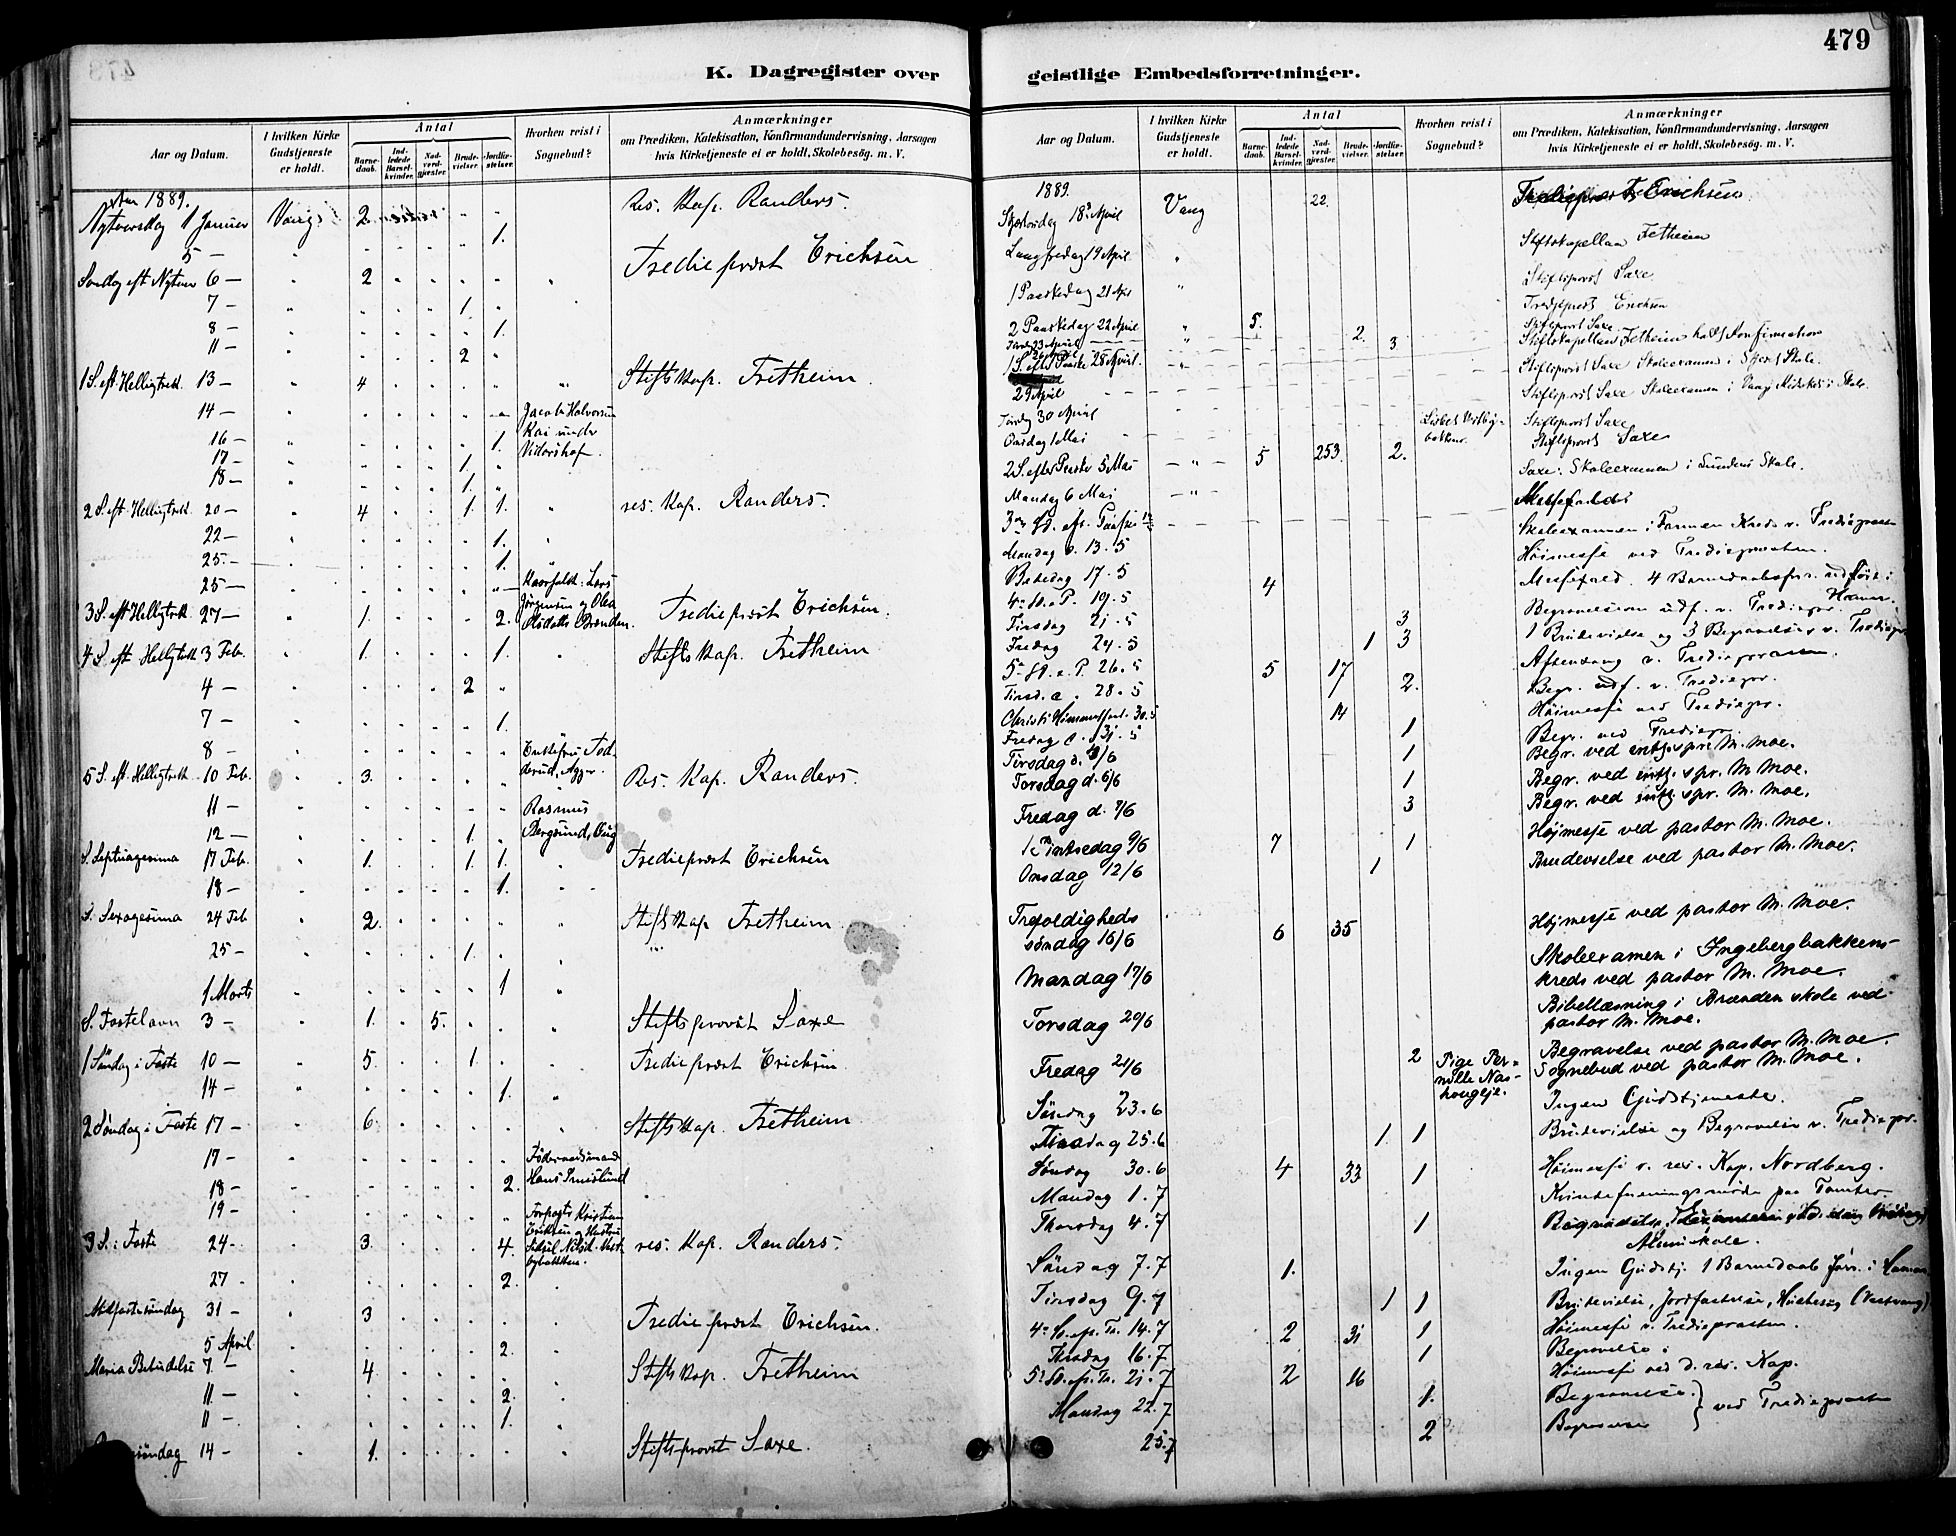 479
K. Dagregister over geistlige Embedsforretninger.
Aar og Datum.
I hvilken Kirke Gudstjeneste er holdt.
Antal
Barnedaab.
Indledede Barselkvinder.
Nadverdgjæster.
Brudevielser.
Jordfæstelser.
Hvorhen reist i Sognebud?
Anmærkninger
om Prædiken, Katekisation, Konfirmandundervisning, Aarsagen
hvis Kirketjeneste ei er holdt, Skolebesøg. m. V.
1889.
Nytaarsdag 1 Januar Vang 2 " " Res. Kap. Randers.
5 — 1.
Søndag eft Nytaar 6 — 2 Trediepræst Erichsen
7 — 1.
8 — 1.
11 — 2
1 S. eft. Helligtrek. 13 — 4 Stiftskap. Fretheim.
14 — Jacob Halvorsen
16 — 1. Kai under Vidarshof.
17 — 1.
18 — 1.
2 S. eft. Helligtrek. 20 — 4 1. 1. res. Kap. Randers.
22 — 1.
25 — 1.
25 —
3 S. eft Helligtrek. 27 — 1. 2. Trediepræst Erichsen.
4 S. eft Helligtrek 3 Feb. 1. 1. Stiftskap. Fretheim
4 — 2
7 — 1.
8 —
5 S. eft. Helligtrek. 10 Feb. 3. Res. Kap. Randers
11 — Rasmus
12 — 1. Bergsund,
S. Septuagesima 17 Feb. 1. 1. 1. Trediepræst Erichsen
18 — 1.
S. Sexagesima 24 Feb 2. Stiftskap Fretheim
25 — 1.
1 Marts 1
S. Fastelavn 3 — 1. 5. Stiftsprovst Saxe
1 Søndag i Faste 10 — 5. 1. Trediepræst Erichsen
14 — 1.
2 Søndag i Faste 17 — 6. Stiftskap. Fretheim
17 —
18 — 2.
19 —
3 S. i Faste 24 — 3. 4. res. Kap. Randers.
27 2.
Midfastesøndag 31 — 3 Trediepræst Erichsen.
5 April 2.
Maria Bebudelse 7 — 4 Stiftskap. Fretheim
11 — 2.
11 — 1.
søndag 14 — 1. Stiftsprovst Saxe.
Aar og Datum.
I hvilken Kirke Gudstjeneste er holdt.
Antal
Barnedaab.
Indledede Barselkvinder.
Nadverdgjæster.
Brudevielser.
Jordfæstelser.
Hvorhen reist i Sognebud?
Anmærkninger
om Prædiken, Katekisation, Konfirmandundervisning, Aarsagen
hvis Kirketjeneste ei er holdt, Skolebesøg. m. V.
1889.
Skjærtorsdag 18 April Vang 22. Erichsen
Langfredag 19 April " Stiftskapellan Fretheim
1 Paaskedag 21 Apr " Stiftsprovst Saxe
2 Paaskedag 22 April " 5. 2. Trediepræst Erichsen
23 April 3 Stiftsprovst Saxe
1 S. efter Paaske 28 April Stiftskapellan Fretheim holdt Konfirmation
29 April Stiftsprovst Saxe Skoleexamen i Skole.
Tirsdag 30 April Stiftsprovst Saxe Skoleexamen i Vang Skole.
Onsdag 1 Mai Stiftsprovst Saxe
2 S. efter Paaske 5 Mai — " — 5 253 2. Stiftsprovst Saxe
Mandag 6 Mai — " — Saxe: Skoleexamen i Skole.
Messefald
Mandag d. 13. 5 Skoleexamen i Kreds v. Trediepræsten
Bededag 17. 5 Høimesse ved Trediepræsten.
4de S. e. P. 19. 5 4 Messefald. 4 Barnedaabsforr. udført i Hamar.
Tirsdag 21. 5 3 Begravelser udf. v. Trediepr.
Fredag 24. 5 1 3 1 Brudevielse og 3 Begravelser v. Trediepr.
5te S. e. P. 26. 5 5 17 Aftensang v. Trediepræsten.
Tirsd. 28. 5 2. Begr. udf. v. Trediepr.
Christi Himmelfart. 30. 5 14 Høimesse ved Trediepr.
Fredag d. 31. 5 1 Begr. ved Trediepr.
Tirsdag d. 4/6 1 Begr. ved M. Moe.
Torsdag d. 6/6 1 Begr. ved M. Moe.
Fredag d. 7/6 3 Begr. ved M. Moe.
1 Pintsedag 9/6 7 1 Højmesse ved pastor M. Moe.
Onsdag 12/6 1 Brudevielse ved pastor M. Moe.
Trefoldigheds
søndag 16/6 6 35 Højmesse ved pastor M. Moe.
Mandag 17/6 Skoleexamen i Ingebergbakkens-
kreds ved pastor M. Moe.
Torsdag 20/6 Bibellæsning i Brænden skole ved
pastor M. Moe.
Fredag 21/6 2 Pige Per- Begravelse ved pastor M. Moe.
nille Nas- Sognebud ved pastor M. Moe.
Søndag 23. 6 Ingen Gudstjeneste.
Tirsdag 25. 6 1. 1 Brudevielse og Begravelse v. Trediepr.
Søndag 30. 6 4 33 1 Høimesse v. res. Kap. Nordberg.
Mandag 1. 7 Kvindeforeningsmøde paa Tomter.
Thorsdag 4. 7 1 Begravelse,
Søndag 7. 7 1. Ingen Gudstj. 1 Barnedaab forr. i Hamar.
Tirsdag 9. 7 1 1 Brudevielse, Jordfæstelse, (Vestvang)
4de S. e. Tr. 14. 7 2 31 1 Høimesse v. Trediepræsten.
Tirsdag 16. 7 1 Begravelse
5te S. e. Tr. 21. 7 2 16 Høimesse ved d. res. Kap.
Mandag 22. 7 1. Begravelse } ved Trediepræsten
25. 7 2 Begravelse